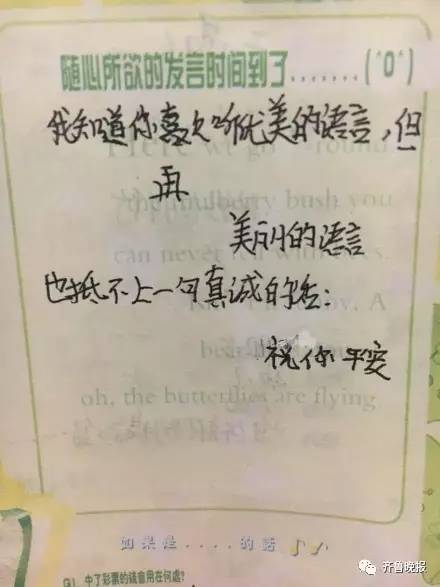 随心所欲的发言时间到了.......(^0^)
我知道你喜欢听优美的语言,但
再
美丽的语言
也抵不上一句真诚的话:
祝你平安
the mulberry bush you
can never
oh, the butterflies are flying
如果是....的話
Q1. 中了彩票的錢會用在何處?
齐鲁晚报